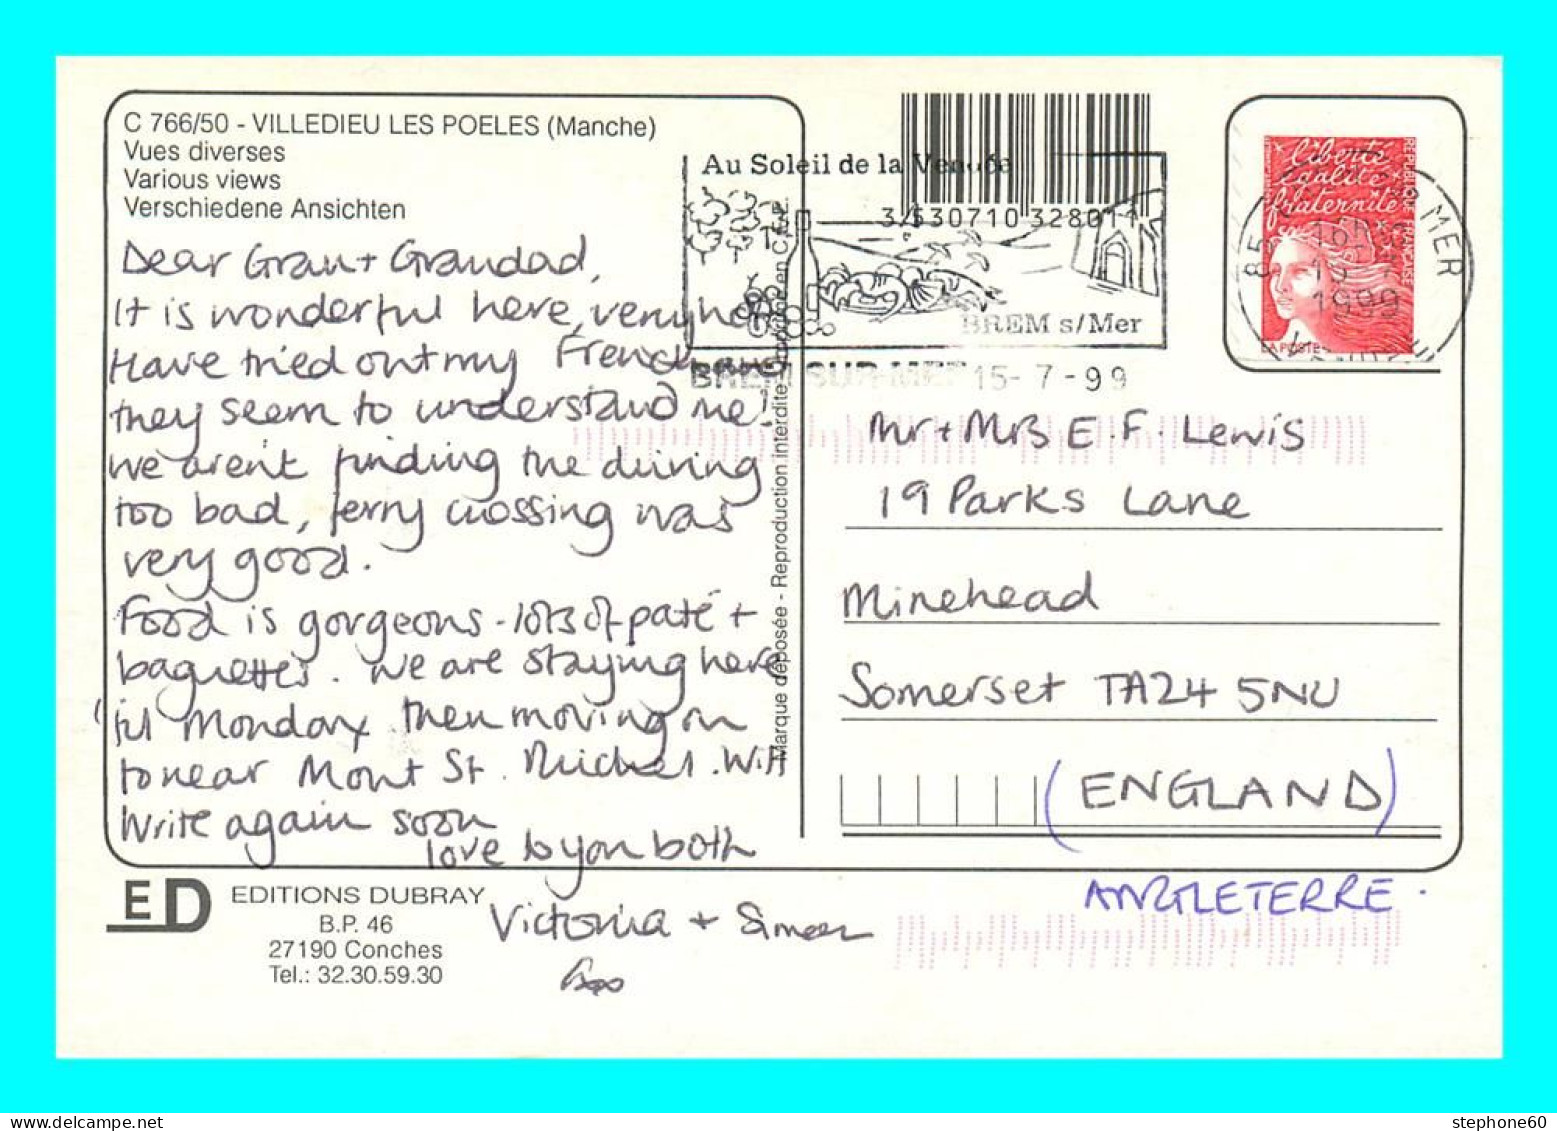 C 766/50 - VILLEDIEU LES POELES (Manche)
Vues diverses
Various views
Verschiedene Ansichten
Dear Gran + Grandad,
It is wonderful here, very hot
Have tried out my French and
they seem to understand me!
We aren't finding the driving
too bad, ferry crossing was
very good.
Food is gorgeous - lots of paté +
baguettes. We are staying here
'til Monday then moving on
to near Mont St. Michel. Will
Write again soon
love to you both
Victoria + Simeon
Marque déposée - Reproduction interdite
Au Soleil de la Vendée
3 530710 328014
BREM s/Mer
BREM SUR MER 15-7-99
liberté
égalité
fraternité
REPUBLIQUE FRANCAISE
LA POSTE
85
MER
16H
15
1999
VENDEE
Mr + Mrs E. F. Lewis
19 Parks Lane
Minehead
Somerset TA24 5NU
(ENGLAND)
ANGLETERRE.
ED
EDITIONS DUBRAY
B.P. 46
27190 Conches
Tel.: 32.30.59.30
stephone60